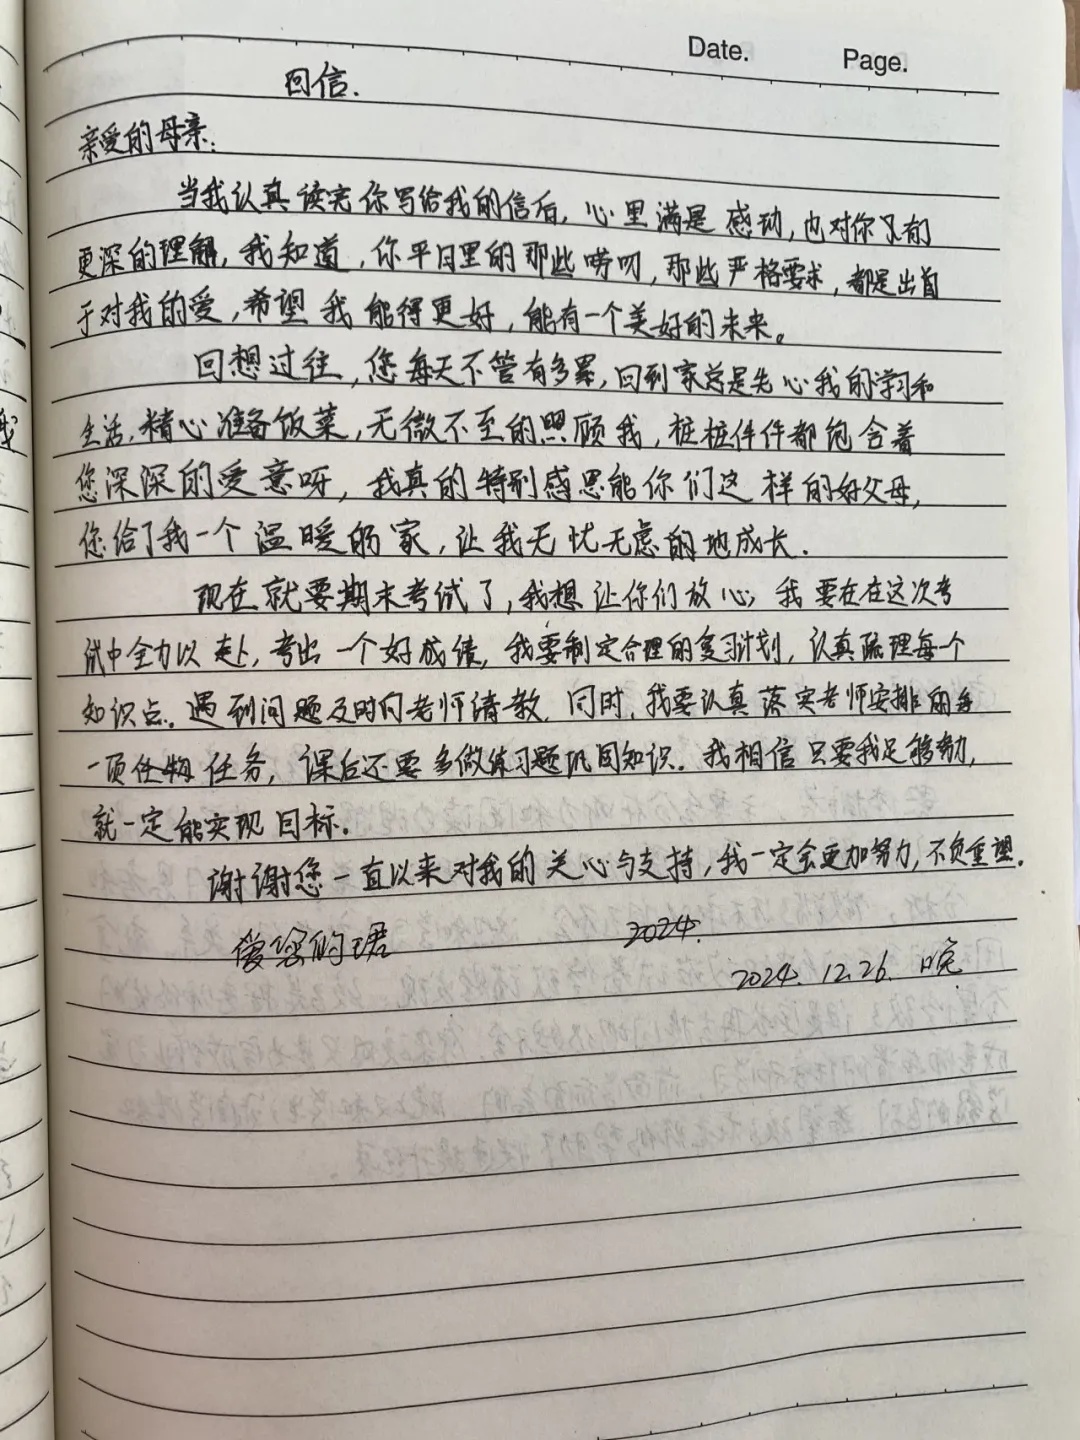 Date. Page.
回信.
亲爱的母亲:
当我认真读完你写给我的信后,心里满是感动,也对你又有
更深的理解,我知道,你平日里的那些唠叨,那些严格要求,都是出自
于对我的爱,希望我能得更好,能有一个美好的未来。
回想过往,您每天不管有多累,回到家总是先心我的学习和
生活,精心准备饭菜,无微不至的照顾我,桩桩件件都饱含着
您深深的爱意呀,我真的特别感恩能你们这样的好父母,
您给了我一个温暖的家,让我无忧无虑的地成长.
现在就要期末考试了,我想让你们放心,我要在在这次考
试中全力以赴,考出一个好成绩,我要制定合理的复习计划,认真疏理每个
知识点。遇到问题及时向老师请教,同时,我要认真落实老师安排的每
一项任务,课后还要多做练习题巩固知识。我相信只要我足够努力,
就一定能实现目标.
谢谢您一直以来对我的关心与支持,我一定会更加努力,不负重望.
爱您的珺
2024.12.26.晚